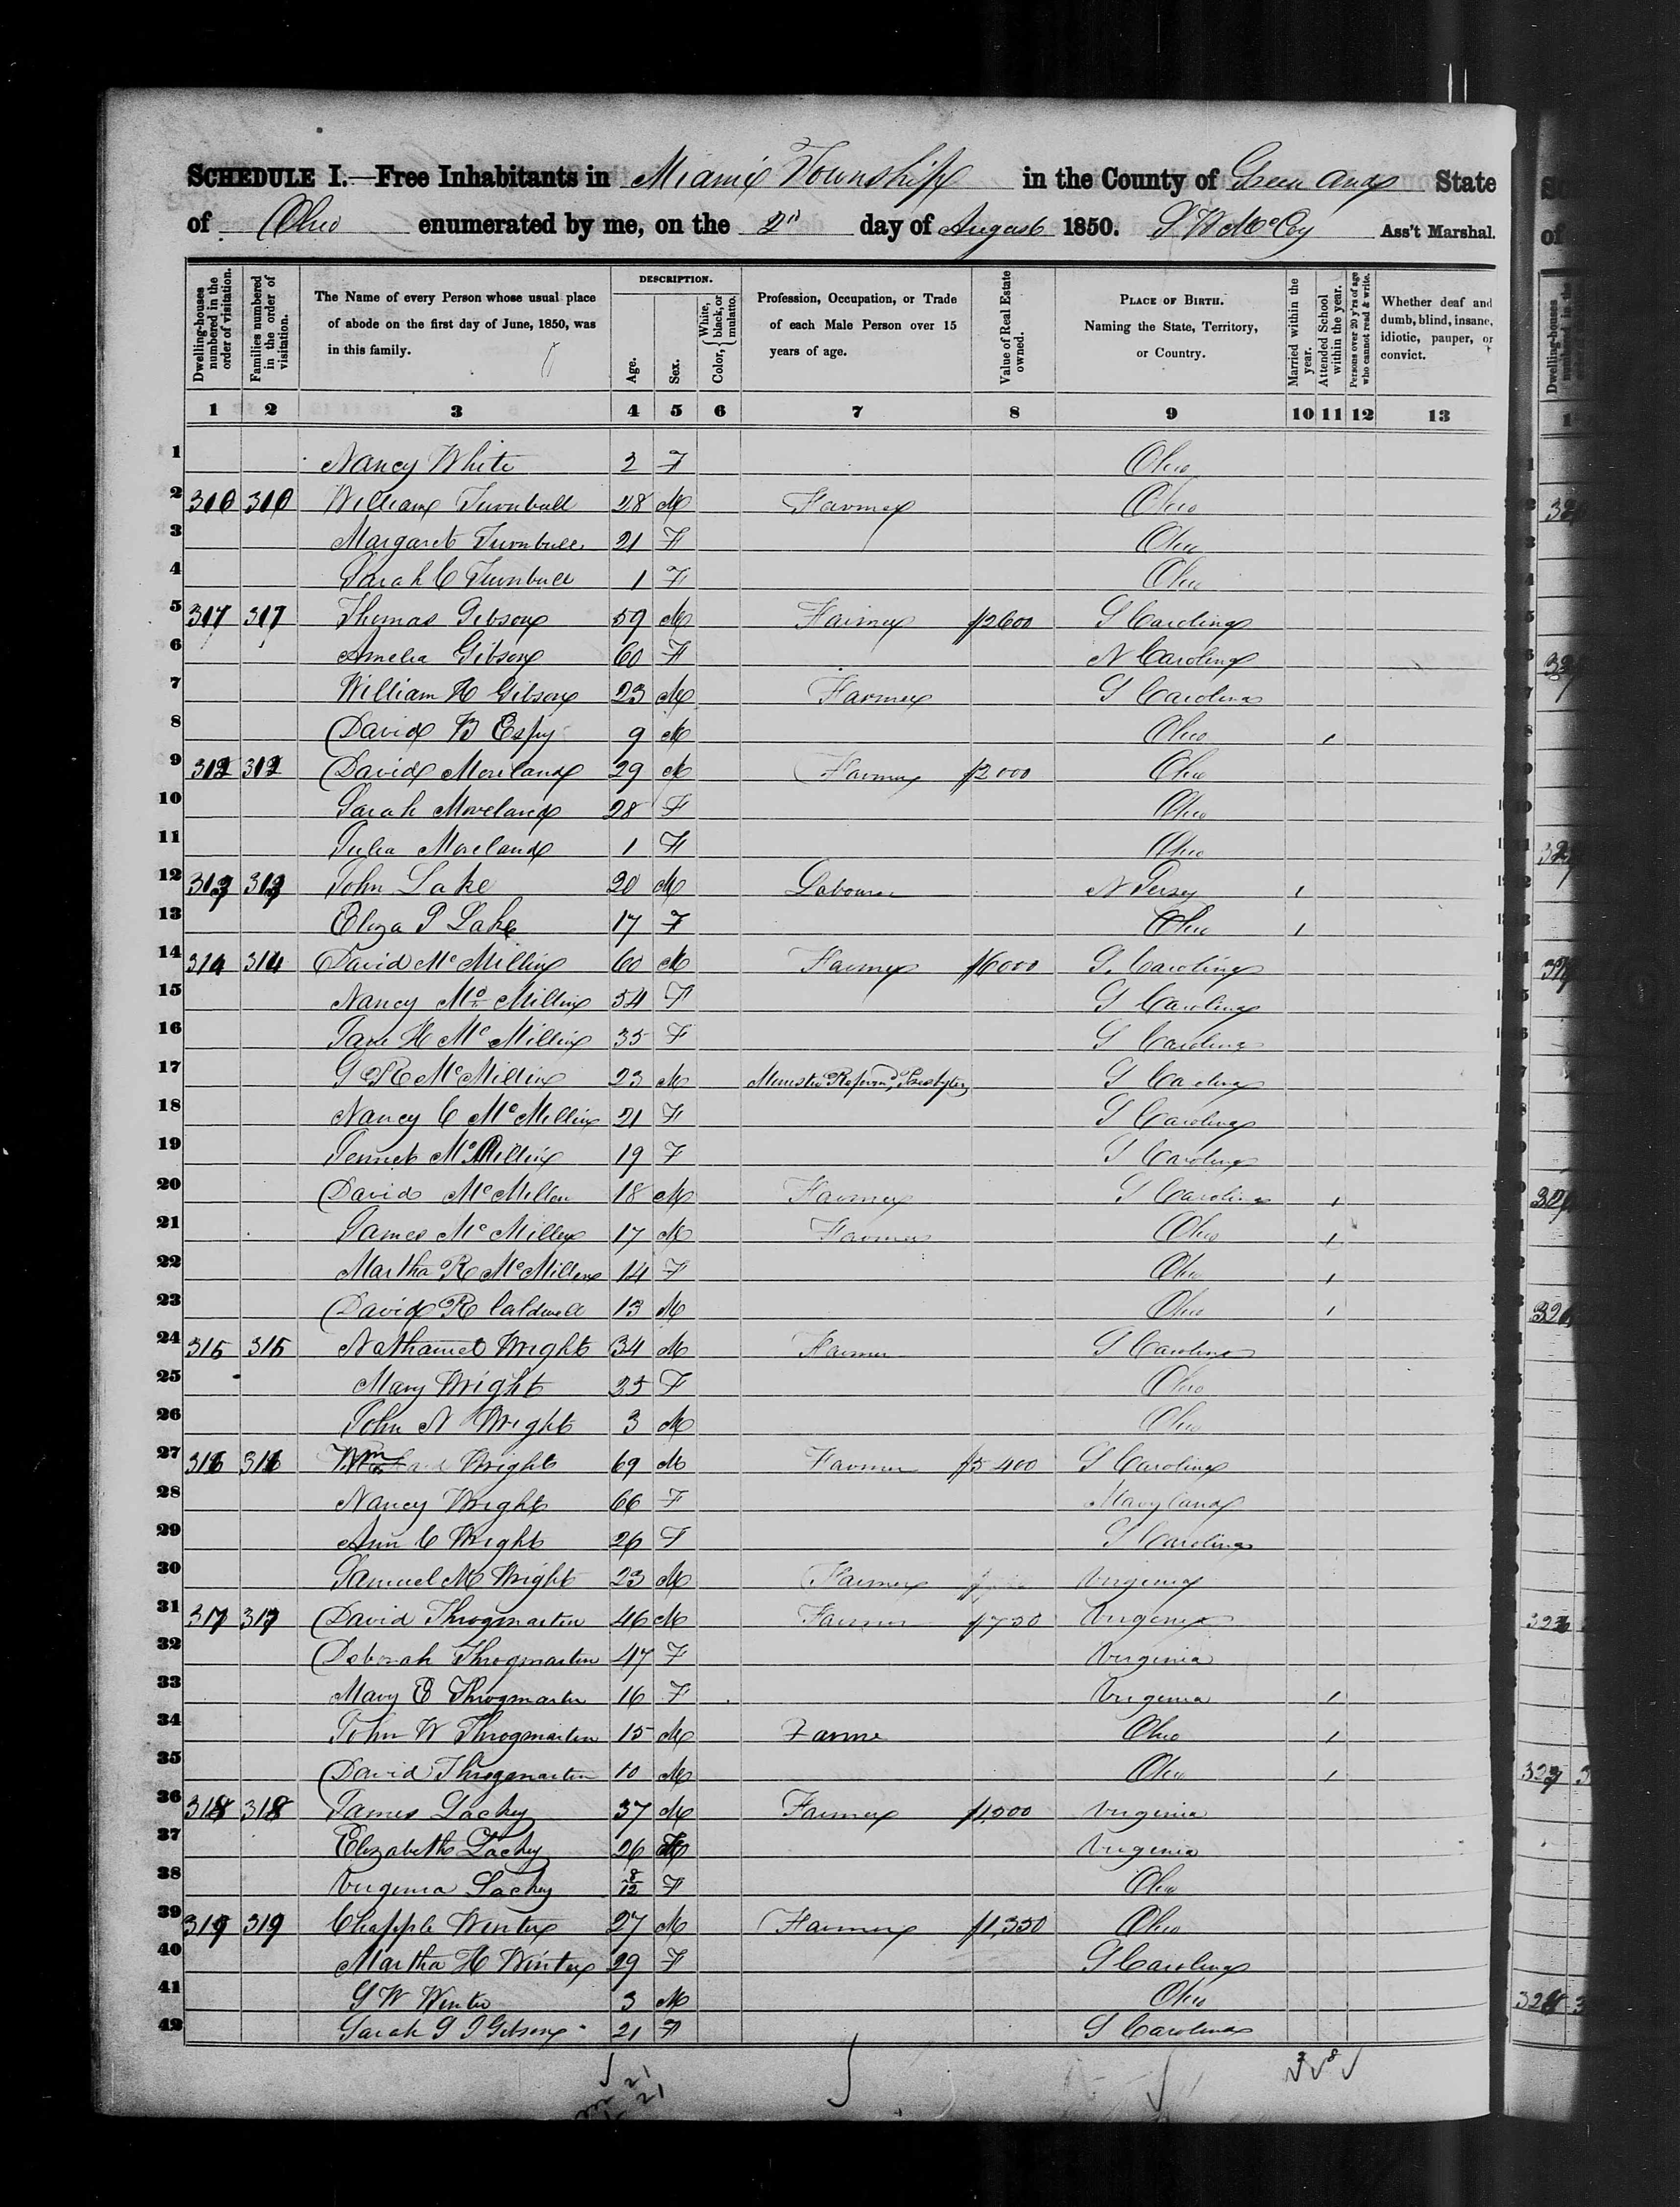 SCHEDULE I.—Free Inhabitants in Miami Township in the County of Green and State
of Ohio enumerated by me, on the 2d day of August 1850. Ass't Marshal.
DESCRIPTION.
Dwelling-houses numbered in the order of visitation.
Families numbered in the order of visitation.
The Name of every Person whose usual place of abode on the first day of June, 1850, was in this family.
Age.
Sex.
Color, { White, black, or mulatto.
Profession, Occupation, or Trade of each Male Person over 15 years of age.
Value of Real Estate owned.
PLACE OF BIRTH. Naming the State, Territory, or Country.
Married within the year.
Attended School within the year.
Persons over 20 y'rs of age who cannot read & write.
Whether deaf and dumb, blind, insane, idiotic, pauper, or convict.
1 2 3 4 5 6 7 8 9 10 11 12 13
1 Nancy White 2 F Ohio
2 310 310 William Turnbull 28 M Farmer Ohio
3 Margaret Turnbull 21 F Ohio
4 Sarah C Turnbull 1 F Ohio
5 Thomas Gibson 59 M Farmer $2600 S Carolina
6 Amelia Gibson 60 F N Carolina
7 William H Gibson 23 M Farmer S Carolina
8 David B Espy 9 M Ohio 1
9 312 312 David Moreland 29 M Farmer $2000 Ohio
10 Sarah Moreland 28 F Ohio
11 Julia Moreland 1 F Ohio
12 313 313 John Lake 20 M Labourer N Jersey 1
13 Eliza P Lake 17 F Ohio 1
14 314 314 David McMillin 60 M Farmer $6000 S. Carolina
15 Nancy McMillin 54 F S Carolina
16 Jane H McMillin 35 F S Carolina
17 McMillin 23 M Minister Reformd Presbyter S Carolina
18 Nancy C McMillin 21 F S Carolina
19 Jennet McMillin 19 F S Carolina
20 David McMillen 18 M Farmer S Carolina 1
21 James McMillen 17 M Farmer Ohio 1
22 Martha R McMillen 14 F Ohio 1
23 David R Caldwell 13 M Ohio 1
24 315 315 Nathaniel Wright 34 M Farmer S Carolina
25 Mary Wright 35 F Ohio
26 John N Wright 3 M Ohio
27 316 316 Wm Wright 69 M Farmer $5400 S Carolina
28 Nancy Wright 66 F Maryland
29 Ann C Wright 26 F S Carolina
30 Samuel M Wright 23 M Farmer Virginia
31 317 317 David Throgmartin 46 M Farmer Virginia
32 Deborah Throgmartin 47 F Virginia
33 Mary E Throgmartin 16 F Virginia 1
34 John W Throgmartin 15 M Farmer Ohio 1
35 David Throgmartin 10 M Ohio 1
36 318 318 James Lackey 37 M Farmer Virginia
37 Elizabeth Lackey 26 F Virginia
38 Virginia Lackey 8/12 F Ohio
39 319 319 Chapple Winter 27 M Farmer $1,350 Ohio
40 Martha H Winter 29 F S Carolina
41 Winter 3 M Ohio
42 Sarah Gibson 21 F S Carolina
21
21